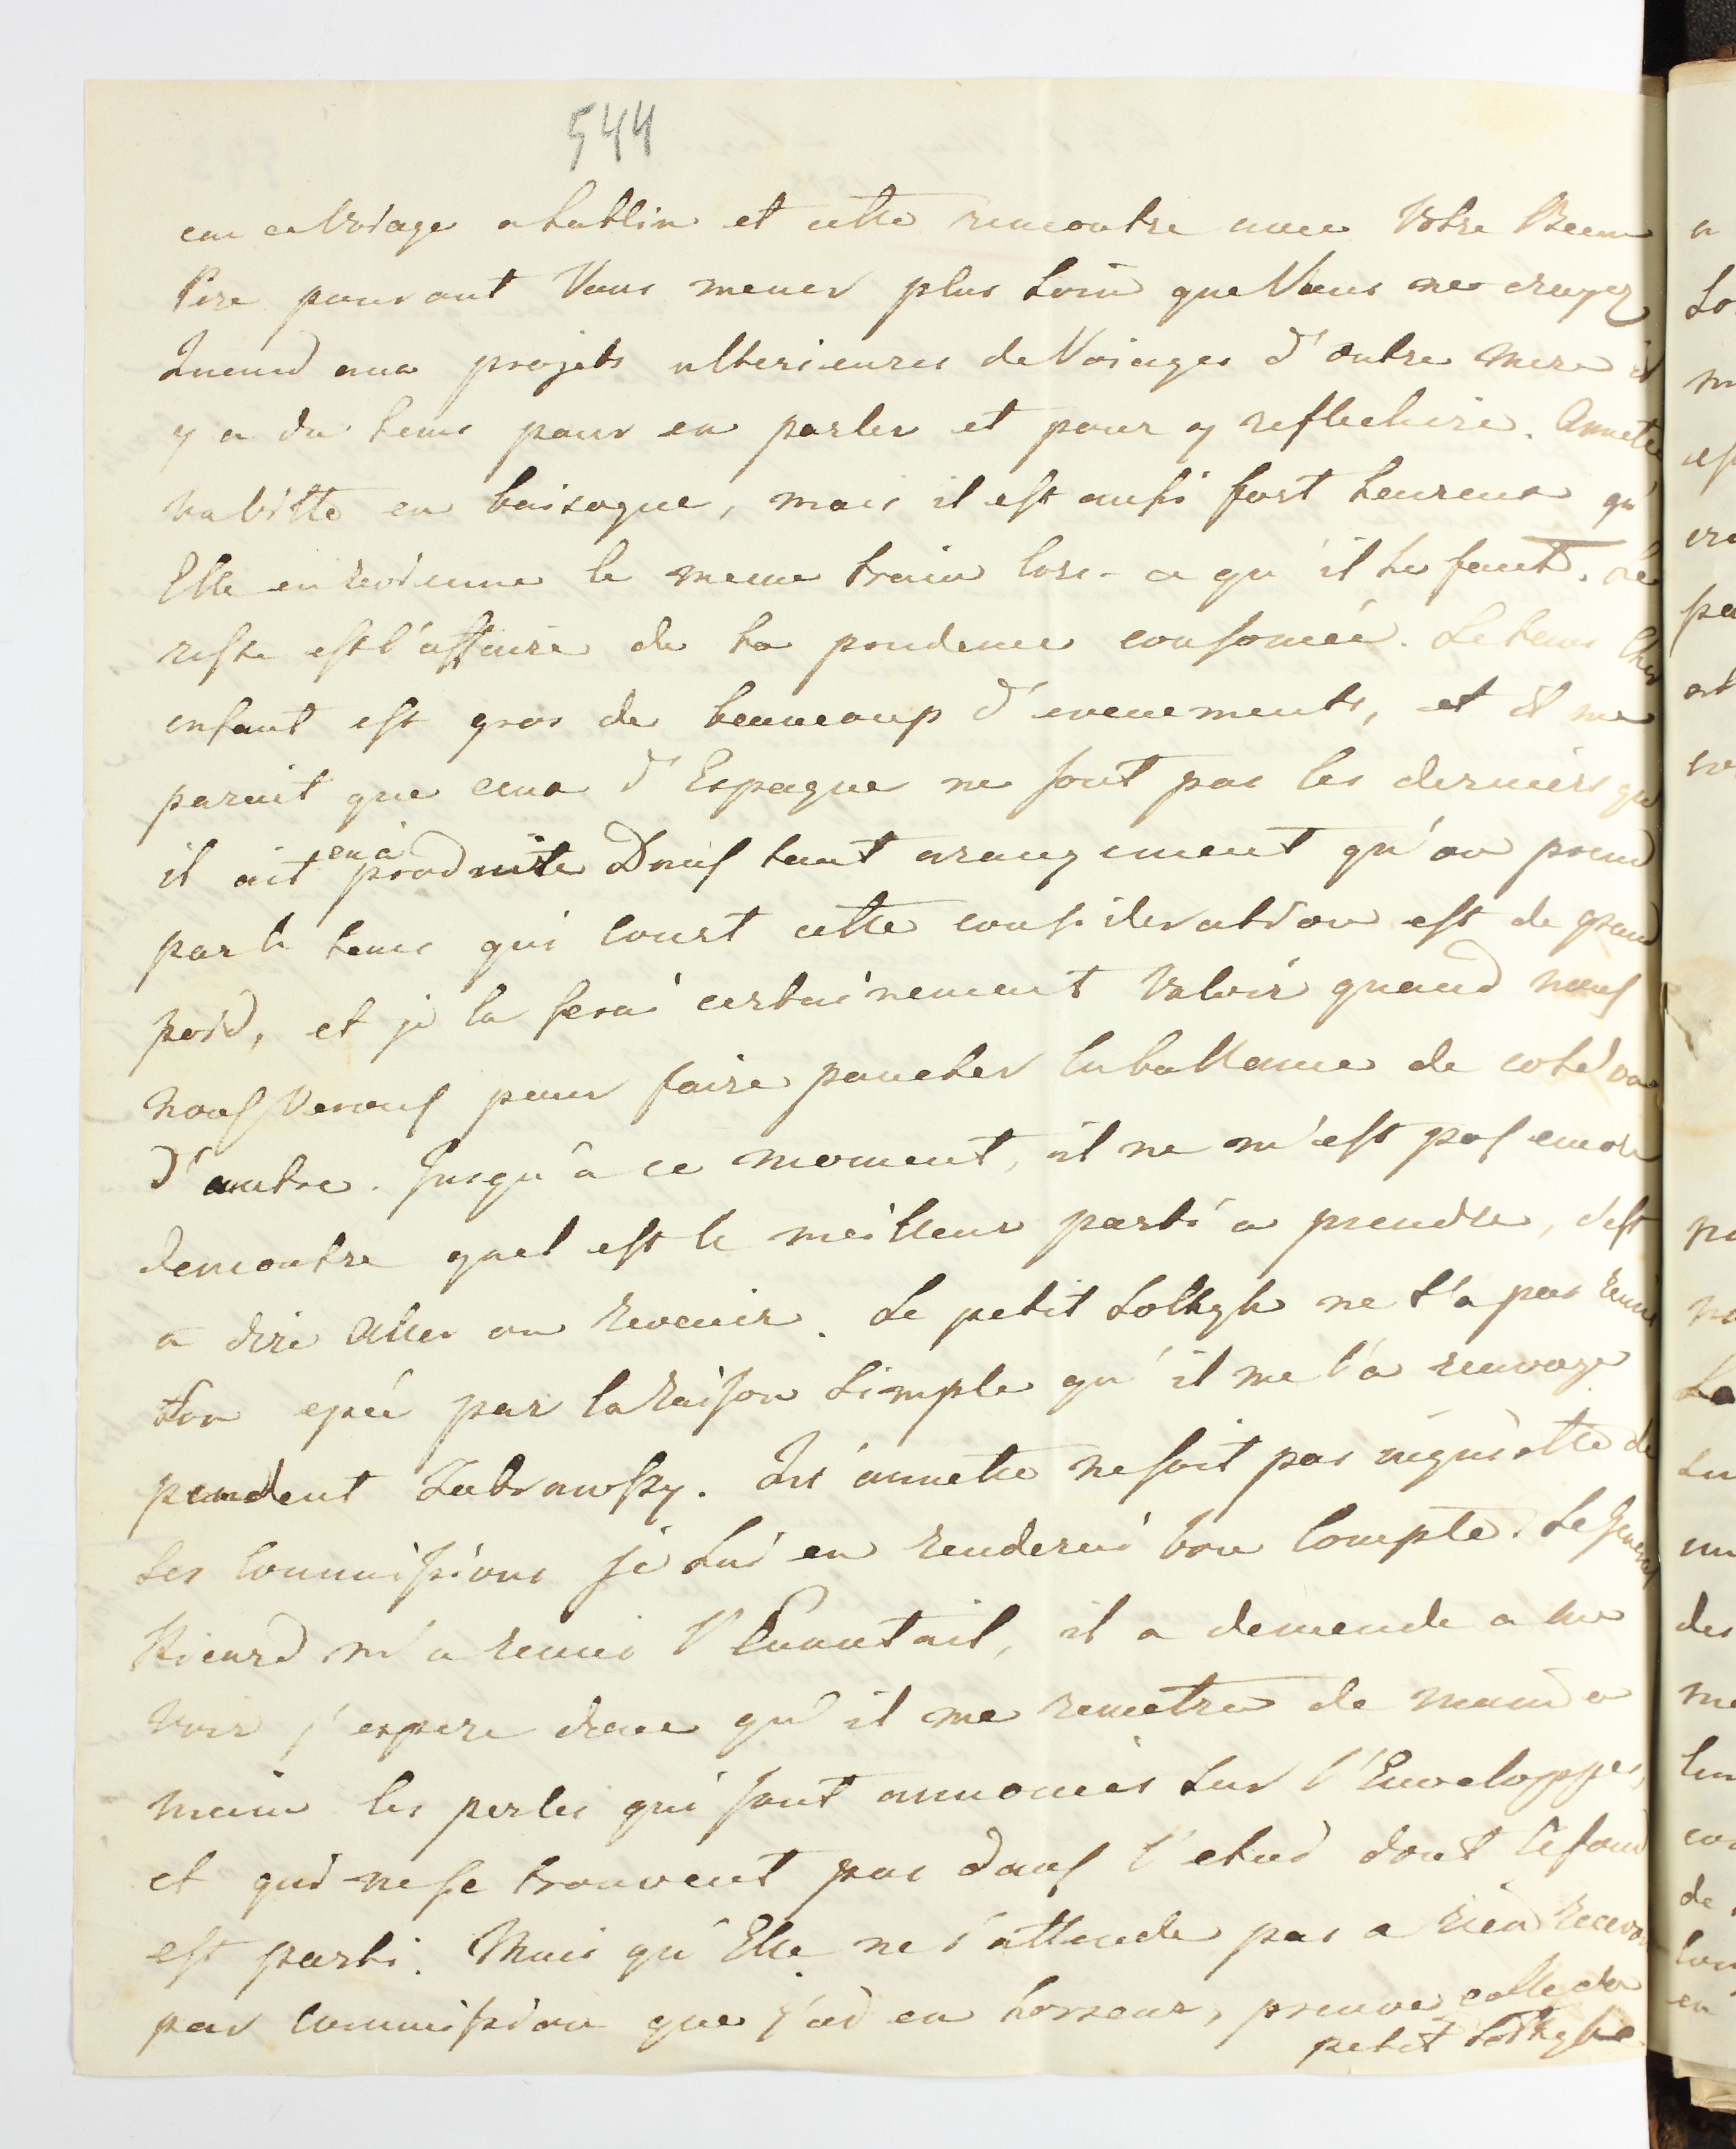 544
car ce Voiage a Lublin et cette rencontre avec Votre Beau
Pere pouront Vous mener plus loin que Vous ne croyez
Quand aux projets ulterieures de Voiages d'outre mere il
y a du tems pour en parler et pour y reflechire. Annete
va vitte en baisogne, mais il est aussi fort heureux qu'
Elle en revienne le meme train lors-ce qu'il le faut. Le
reste est l'affaire de ta prudence consomée. Le tems Cher
enfant est gros de beaucoup d'evenements, et il me
parait que ceux d'Espagne ne sont pas les derniers qu'
il ait en a produite Dans tout arangement qu'on prend
par le tems qui court cette consideration est de grand
poid, et je la ferai certainement Valoir quand nous
nous Verons pour faire pancher la ballance de coté ou
d'autre. Jusqu'a ce moment, il ne m'est pas encore
demontre quel est le meilleur parti a prendre, c'est
a dire Aller ou revenir. Le petit Soltyk ne t'a pas remis
ton epée par la raison simple qu'il me l'a renvoye
pendent Zabrowsky. Qu'annette ne soit pas inquiette de
ses Commissions je lui en renderai bon Compte. Le General
Ricard m'a remis l'Evantail, il a demende a me
voir j'espere donc qu'il me remetra de main a
main les perles qui sont annoncés sur l'Enveloppes,
et qui ne se trouvent pas dans l'etui dont le fond
est parti. Mais qu'Elle ne s'attende pas a rien recevoir
par Commission que j'ai en horreur, preuve celle du
petit Soltyk.